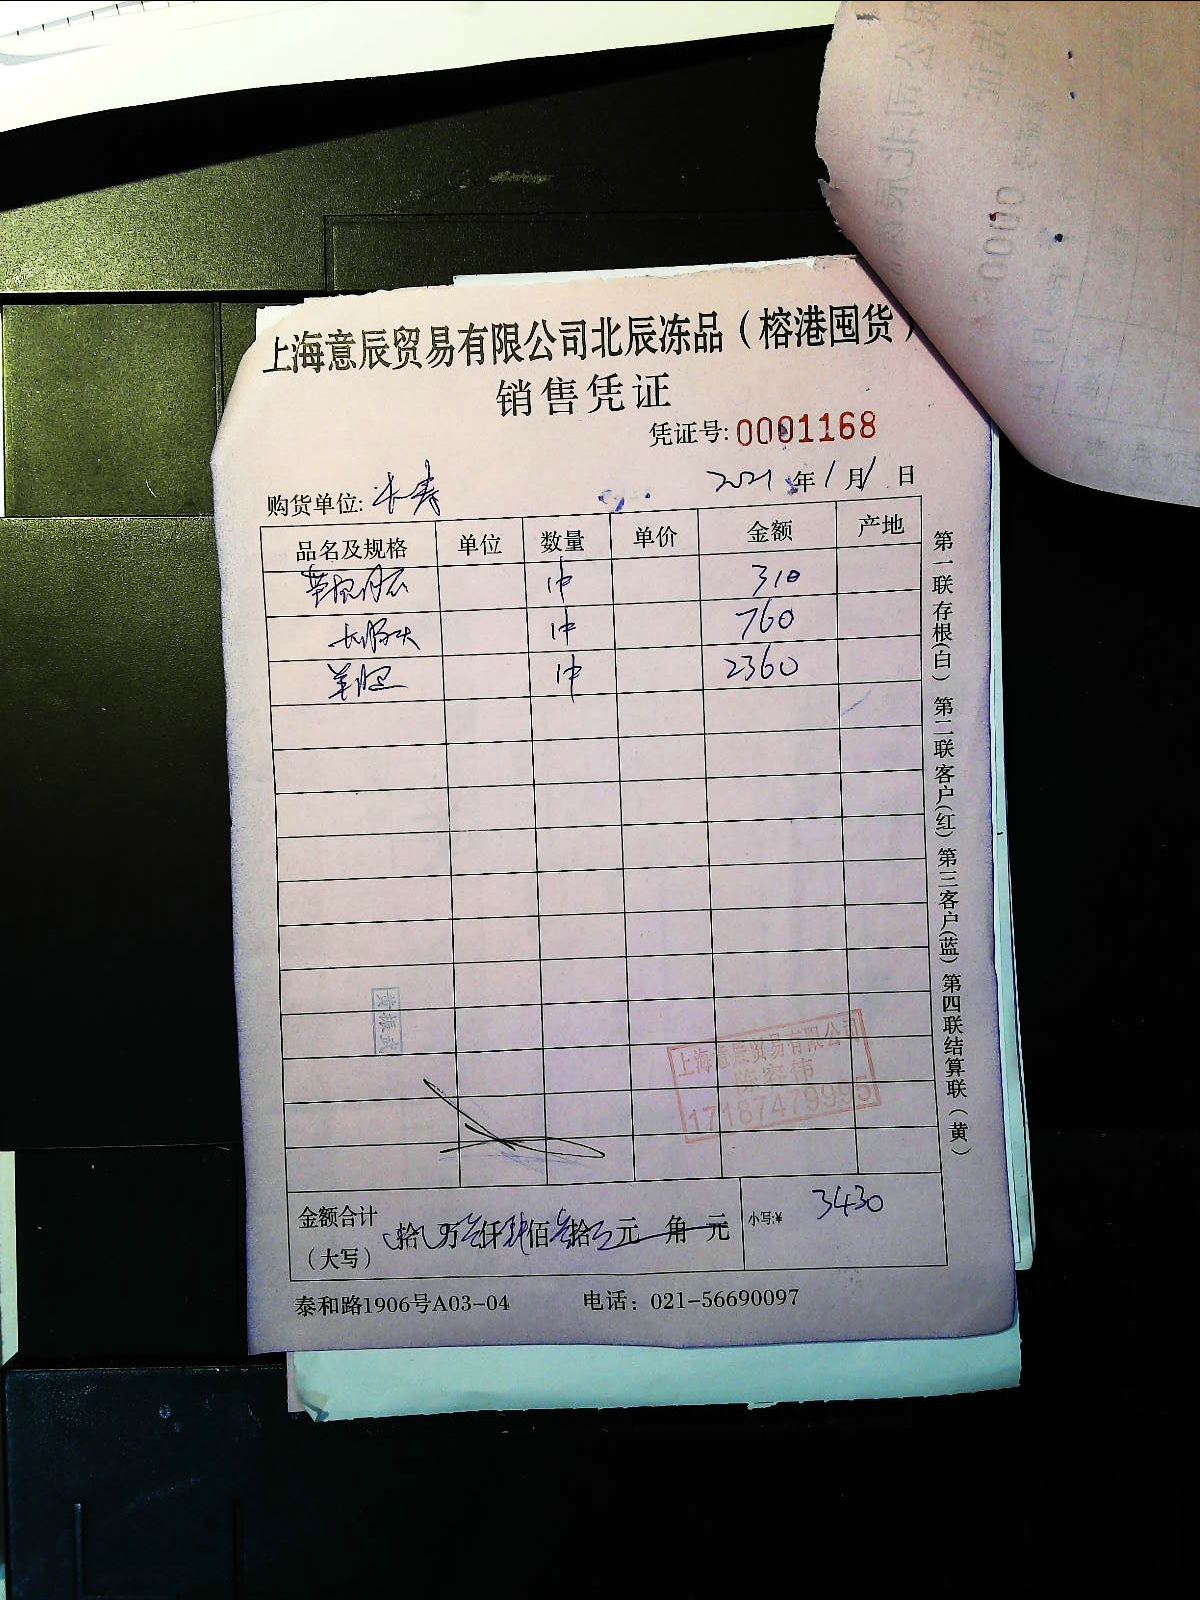 上海意辰贸易有限公司北辰冻品（榕港囤货）
销售凭证
凭证号: 0001168
购货单位: 长寿 2021年1月1日
品名及规格 单位 数量 单价 金额 产地
1件 310
1件 760
1件 2360
黄振武
上海意辰贸易有限公司
陈宏伟
17187479995
金额合计 拾 万叁仟肆佰叁拾 元 角 元 小写:¥ 3430
（大写）
泰和路1906号A03-04 电话：021-56690097
第一联存根(白) 第二联客户(红) 第三客户(蓝) 第四联结算联（黄）